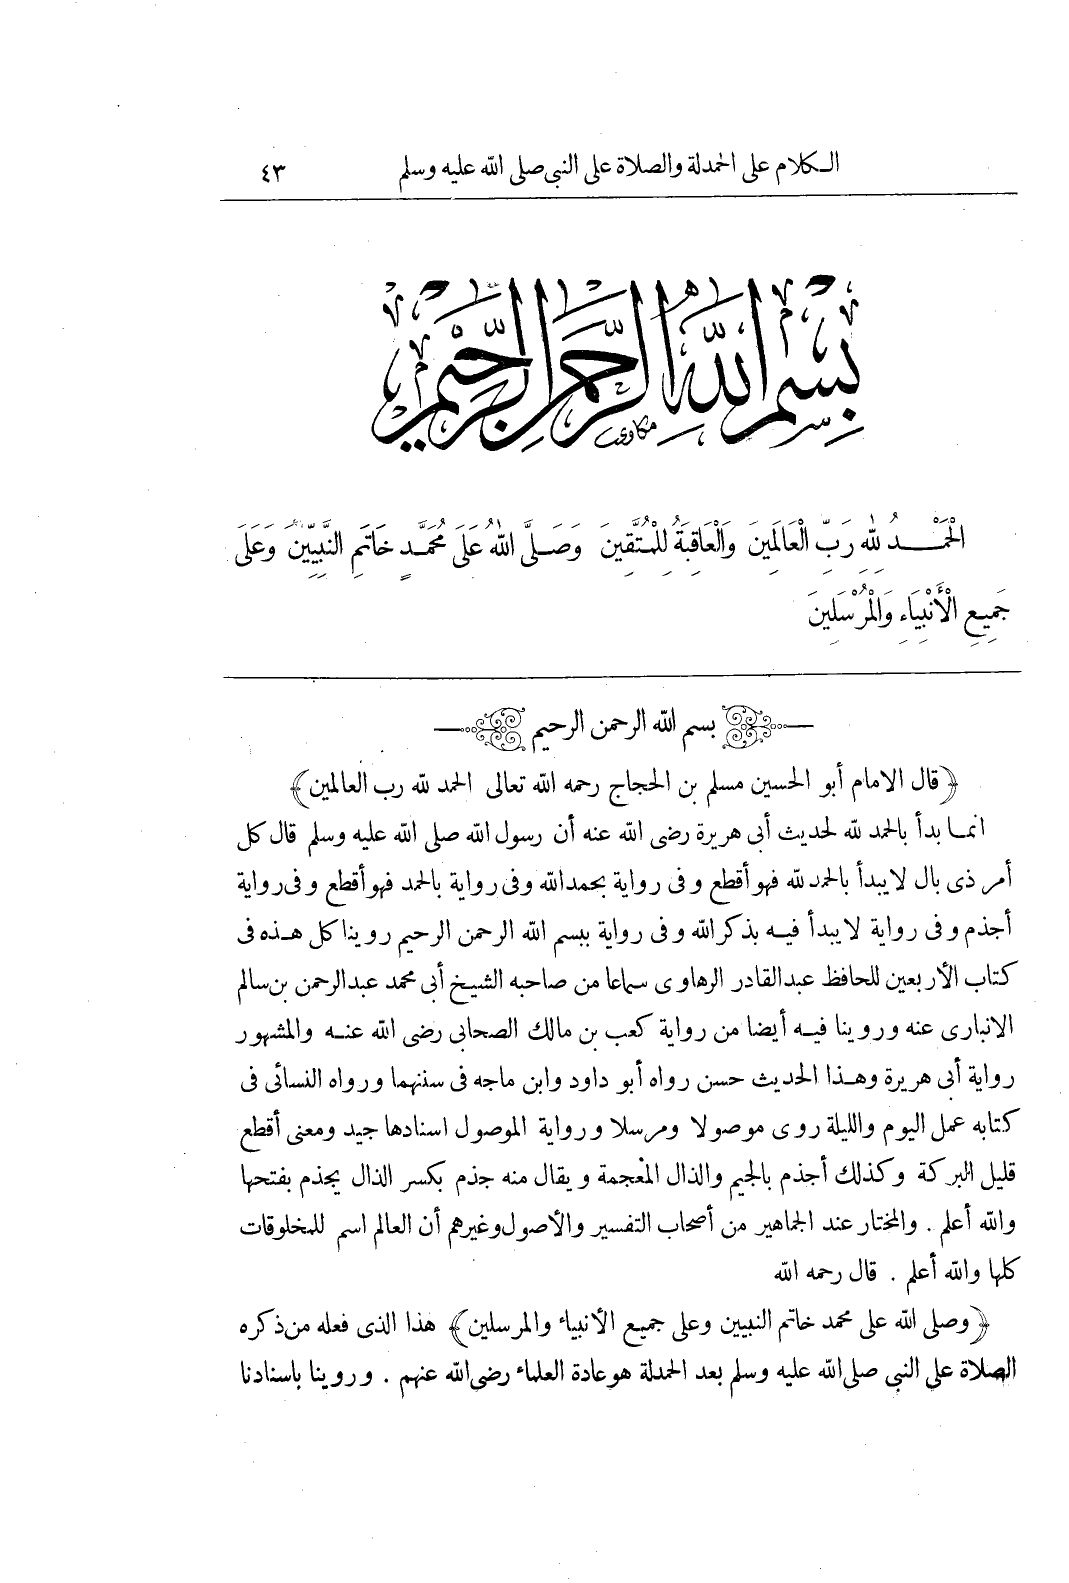 الكلام على الحمدلة والصلاة على النبى صلى الله عليه وسلم ٤٣
بِسْمِ اللهِ الرَّحْمنِ الرَّحِيمِ
مكاوى
الْحَمْـــدُ لِلهِ رَبِّ الْعَالَمِينَ وَالْعَاقِبَةُ لِلْمُتَّقِينَ وَصَلَّى اللهُ عَلَى مُحَمَّدٍ خَاتَمِ النَّبِيِّينَ وَعَلَى
جَمِيعِ الْأَنْبِيَاءِ وَالْمُرْسَلِينَ
بسم الله الرحمن الرحيم
﴿قال الامام أبو الحسين مسلم بن الحجاج رحمه الله تعالى الحمد لله رب العالمين﴾
انما بدأ بالحمد لله لحديث أبى هريرة رضى الله عنه أن رسول الله صلى الله عليه وسلم قال كل
أمر ذى بال لا يبدأ بالحمد لله فهو أقطع وفى رواية بحمد الله وفى رواية بالحمد فهو أقطع وفى رواية
أجذم وفى رواية لا يبدأ فيه بذكر الله وفى رواية ببسم الله الرحمن الرحيم روينا كل هذه فى
كتاب الأربعين للحافظ عبد القادر الرهاوى سماعا من صاحبه الشيخ أبى محمد عبد الرحمن بن سالم
الانبارى عنه وروينا فيه أيضا من رواية كعب بن مالك الصحابى رضى الله عنه والمشهور
رواية أبى هريرة وهذا الحديث حسن رواه أبو داود وابن ماجه فى سننهما ورواه النسائى فى
كتابه عمل اليوم والليلة روى موصولا ومرسلا ورواية الموصول اسنادها جيد ومعنى أقطع
قليل البركة وكذلك أجذم بالجيم والذال المعجمة ويقال منه جذم بكسر الذال يجذم بفتحها
والله أعلم . والمختار عند الجماهير من أصحاب التفسير والأصول وغيرهم أن العالم اسم للمخلوقات
كلها والله أعلم . قال رحمه الله
﴿وصلى الله على محمد خاتم النبيين وعلى جميع الأنبياء والمرسلين﴾ هذا الذى فعله من ذكره
الصلاة على النبى صلى الله عليه وسلم بعد الحمدلة هو عادة العلماء رضى الله عنهم . وروينا باسنادنا